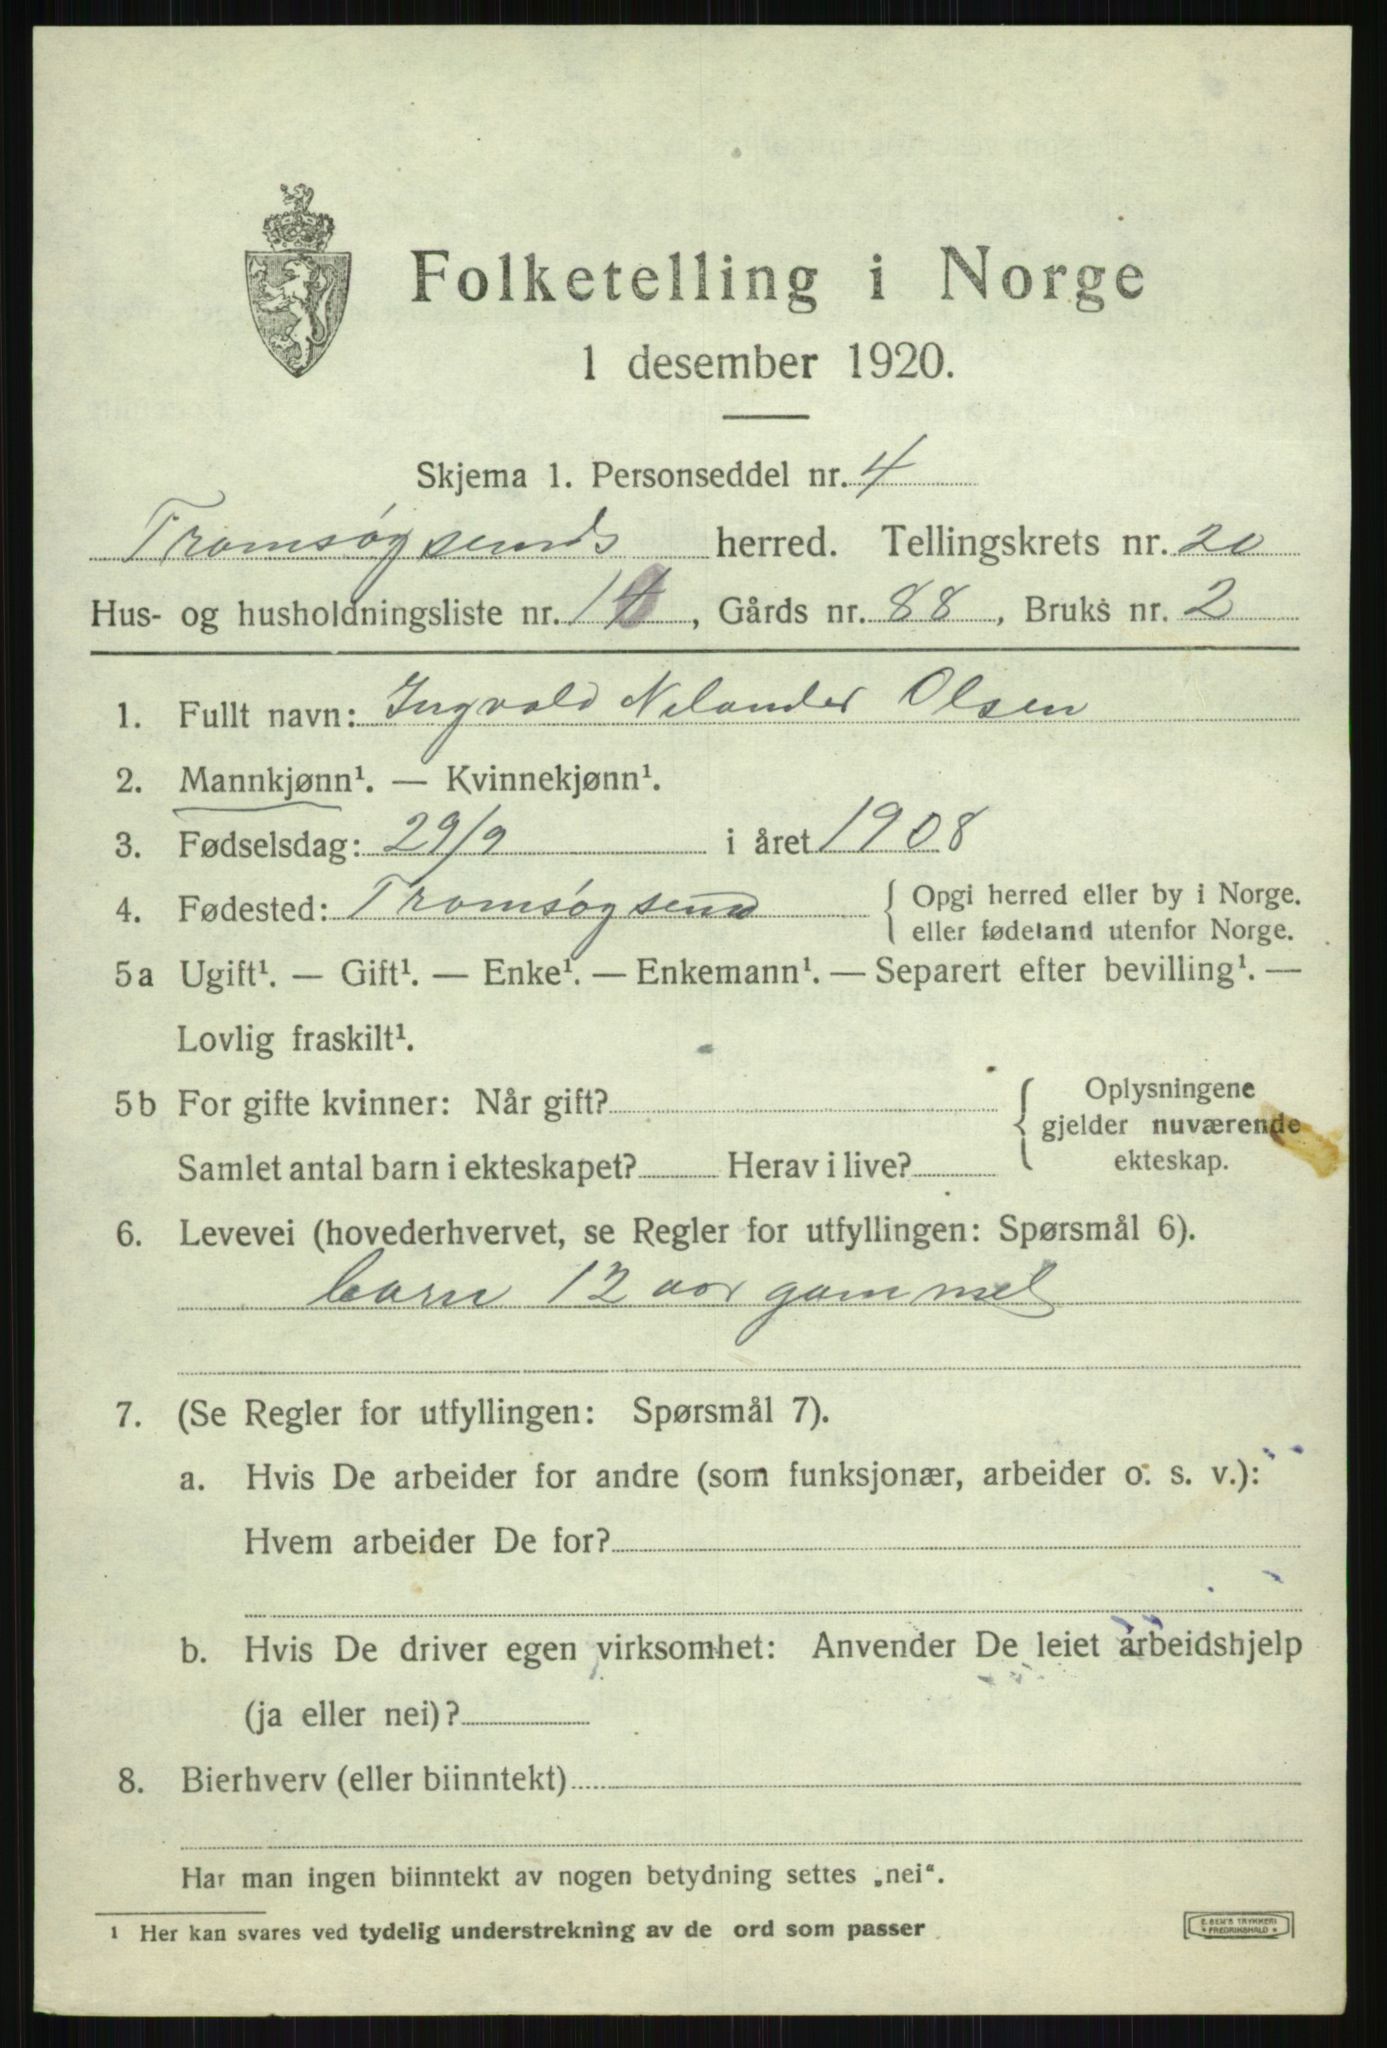 Folketelling i Norge
1 desember 1920.
Skjema 1. Personseddel nr. 4
Tromsøysunds herred. Tellingskrets nr. 20
Hus- og husholdningsliste nr. 1, Gårds nr. 88, Bruks nr. 2
1. Fullt navn: Ingvald Nelander Olsen
2. Mannkjønn¹. — Kvinnekjønn¹.
3. Fødselsdag: 29/9 i året 1908
4. Fødested: Tromsøysund { Opgi herred eller by i Norge.
eller fødeland utenfor Norge.
5a Ugift¹. — Gift¹. — Enke¹. — Enkemann¹. — Separert efter bevilling¹. —
Lovlig fraskilt¹.
5b For gifte kvinner: Når gift? { Oplysningene
gjelder nuværende
Samlet antal barn i ekteskapet? Herav i live? ekteskap.
6. Levevei (hovederhvervet, se Regler for utfyllingen: Spørsmål 6).
barn 12 aar gammel
7. (Se Regler for utfyllingen: Spørsmål 7).
a. Hvis De arbeider for andre (som funksjonær, arbeider o. s. v.):
Hvem arbeider De for?
b. Hvis De driver egen virksomhet: Anvender De leiet arbeidshjelp
(ja eller nei)?
8. Bierhverv (eller biinntekt)
Har man ingen biinntekt av nogen betydning settes „nei“.
1 Her kan svares ved tydelig understrekning av de ord som passer
E. SEM'S TRYKKERI
* FREDRIKSHALD *